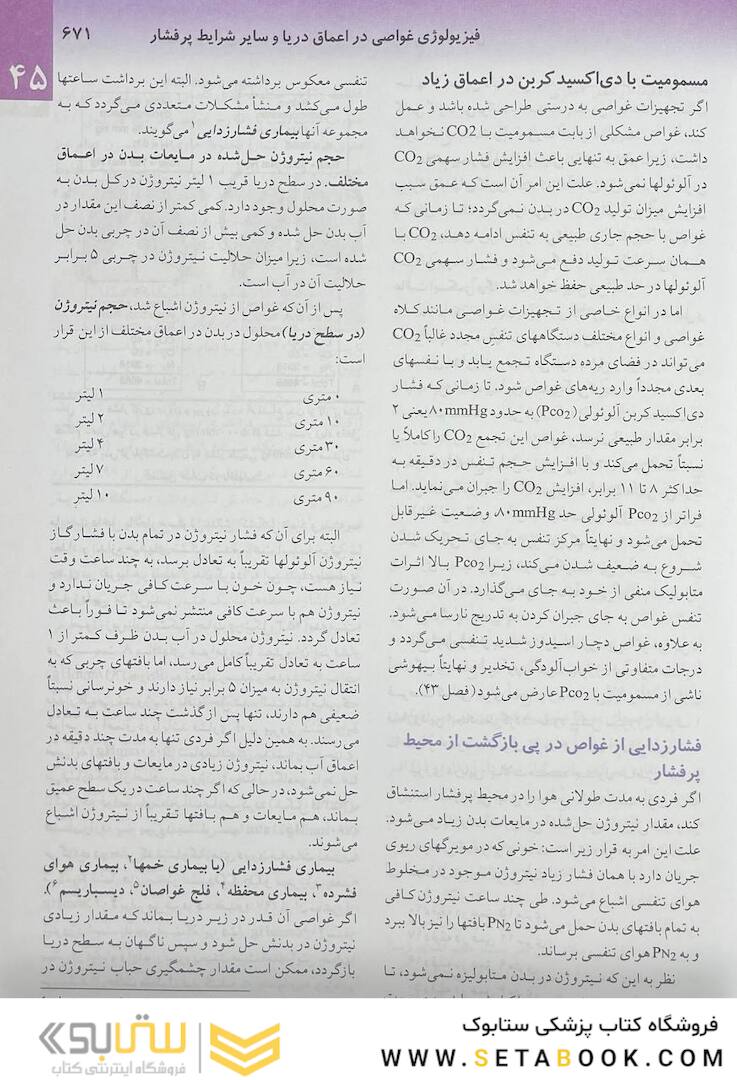 فیزیولوژی غواصی در اعماق دریا و سایر شرایط پرفشار ۶۷۱
۴۵
مسمومیت با دی‌اکسید کربن در اعماق زیاد
اگر تجهیزات غواصی به درستی طراحی شده باشد و عمل
کند، غواص مشکلی از بابت مسمومیت با CO2 نخواهد
داشت، زیرا عمق به تنهایی باعث افزایش فشار سهمی CO2
در آلوئولها نمی‌شود. علت این امر آن است که عمق سبب
افزایش میزان تولید CO2 در بدن نمی‌گردد؛ تا زمانی که
غواص با حجم جاری طبیعی به تنفس ادامه دهد، CO2 با
همان سرعت تولید دفع می‌شود و فشار سهمی CO2
آلوئولها در حد طبیعی حفظ خواهد شد.
اما در انواع خاصی از تجهیزات غواصی مانند کلاه
غواصی و انواع مختلف دستگاههای تنفسِ مجدد غالباً CO2
می‌تواند در فضای مرده دستگاه تجمع یابد و با نفسهای
بعدی مجدداً وارد ریه‌های غواص شود. تا زمانی که فشار
دی‌اکسید کربن آلوئولی (Pco2) به حدود ۸۰mmHg یعنی ۲
برابر مقدار طبیعی نرسد، غواص این تجمع CO2 را کاملاً یا
نسبتاً تحمل می‌کند و با افزایش حجم تنفس در دقیقه به
حداکثر ۸ تا ۱۱ برابر، افزایش CO2 را جبران می‌نماید. اما
فراتر از Pco2 آلوئولی حد ۸۰mmHg، وضعیت غیرقابل
تحمل می‌شود و نهایتاً مرکز تنفس به جای تحریک شدن
شروع به ضعیف شدن می‌کند، زیرا Pco2 بالا اثرات
متابولیک منفی از خود به جای می‌گذارد. در آن صورت
تنفس غواص به جای جبران کردن به تدریج نارسا می‌شود.
به علاوه، غواص دچار اسیدوز شدید تنفسی می‌گردد و
درجات متفاوتی از خواب‌آلودگی، تخدیر و نهایتاً بیهوشی
ناشی از مسمومیت با Pco2 عارض می‌شود (فصل ۴۳).
فشارزدایی از غواص در پی بازگشت از محیط
پرفشار
اگر فردی به مدت طولانی هوا را در محیط پرفشار استنشاق
کند، مقدار نیتروژن حل‌شده در مایعات بدن زیاد می‌شود.
علت این امر به قرار زیر است: خونی که در مویرگهای ریوی
جریان دارد با همان فشار زیاد نیتروژن موجود در مخلوط
هوای تنفسی اشباع می‌شود. طی چند ساعت نیتروژن کافی
به تمام بافتهای بدن حمل می‌شود تا PN2 بافتها را نیز بالا ببرد
و به PN2 هوای تنفسی برساند.
نظر به این که نیتروژن در بدن متابولیزه نمی‌شود، تا
تنفسی معکوس برداشته می‌شود. البته این برداشت ساعتها
طول می‌کشد و منشأ مشکلات متعددی می‌گردد که به
مجموعه آنها بیماری فشارزدایی۱ می‌گویند.
حجم نیتروژن حل‌شده در مایعات بدن در اعماق
مختلف. در سطح دریا قریب ۱ لیتر نیتروژن در کل بدن به
صورت محلول وجود دارد. کمی کمتر از نصف این مقدار در
آب بدن حل شده و کمی بیش از نصف آن در چربی بدن حل
شده است، زیرا میزان حلالیت نیتروژن در چربی ۵ برابر
حلالیت آن در آب است.
پس از آن که غواص از نیتروژن اشباع شد، حجم نیتروژن
(در سطح دریا) محلول در بدن در اعماق مختلف از این قرار
است:
۰ متری ۱ لیتر
۱۰ متری ۲ لیتر
۳۰ متری ۴ لیتر
۶۰ متری ۷ لیتر
۹۰ متری ۱۰ لیتر
البته برای آن که فشار نیتروژن در تمام بدن با فشار گاز
نیتروژن آلوئولها تقریباً به تعادل برسد، به چند ساعت وقت
نیاز هست، چون خون با سرعت کافی جریان ندارد و
نیتروژن هم با سرعت کافی منتشر نمی‌شود تا فوراً باعث
تعادل گردد. نیتروژن محلول در آب بدن ظرف کمتر از ۱
ساعت به تعادل تقریباً کامل می‌رسد، اما بافتهای چربی که به
انتقال نیتروژن به میزان ۵ برابر نیاز دارند و خونرسانی نسبتاً
ضعیفی هم دارند، تنها پس از گذشت چند ساعت به تعادل
می‌رسند. به همین دلیل اگر فردی تنها به مدت چند دقیقه در
اعماق آب بماند، نیتروژن زیادی در مایعات و بافتهای بدنش
حل نمی‌شود، در حالی که اگر چند ساعت در یک سطح عمیق
بماند، هم مایعات و هم بافتها تقریباً از نیتروژن اشباع
می‌شوند.
بیماری فشارزدایی (یا بیماری خمها۲، بیماری هوای
فشرده۳، بیماری محفظه۴، فلج غواصان۵، دیسباریسم۶).
اگر غواصی آن قدر در زیر دریا بماند که مقدار زیادی
نیتروژن در بدنش حل شود و سپس ناگهان به سطح دریا
بازگردد، ممکن است مقدار چشمگیری حباب نیتروژن در
فروشگاه کتاب پزشکی ستابوک
WWW.SETABOOK.COM
ستابوک
فروشگاه اینترنتی کتاب